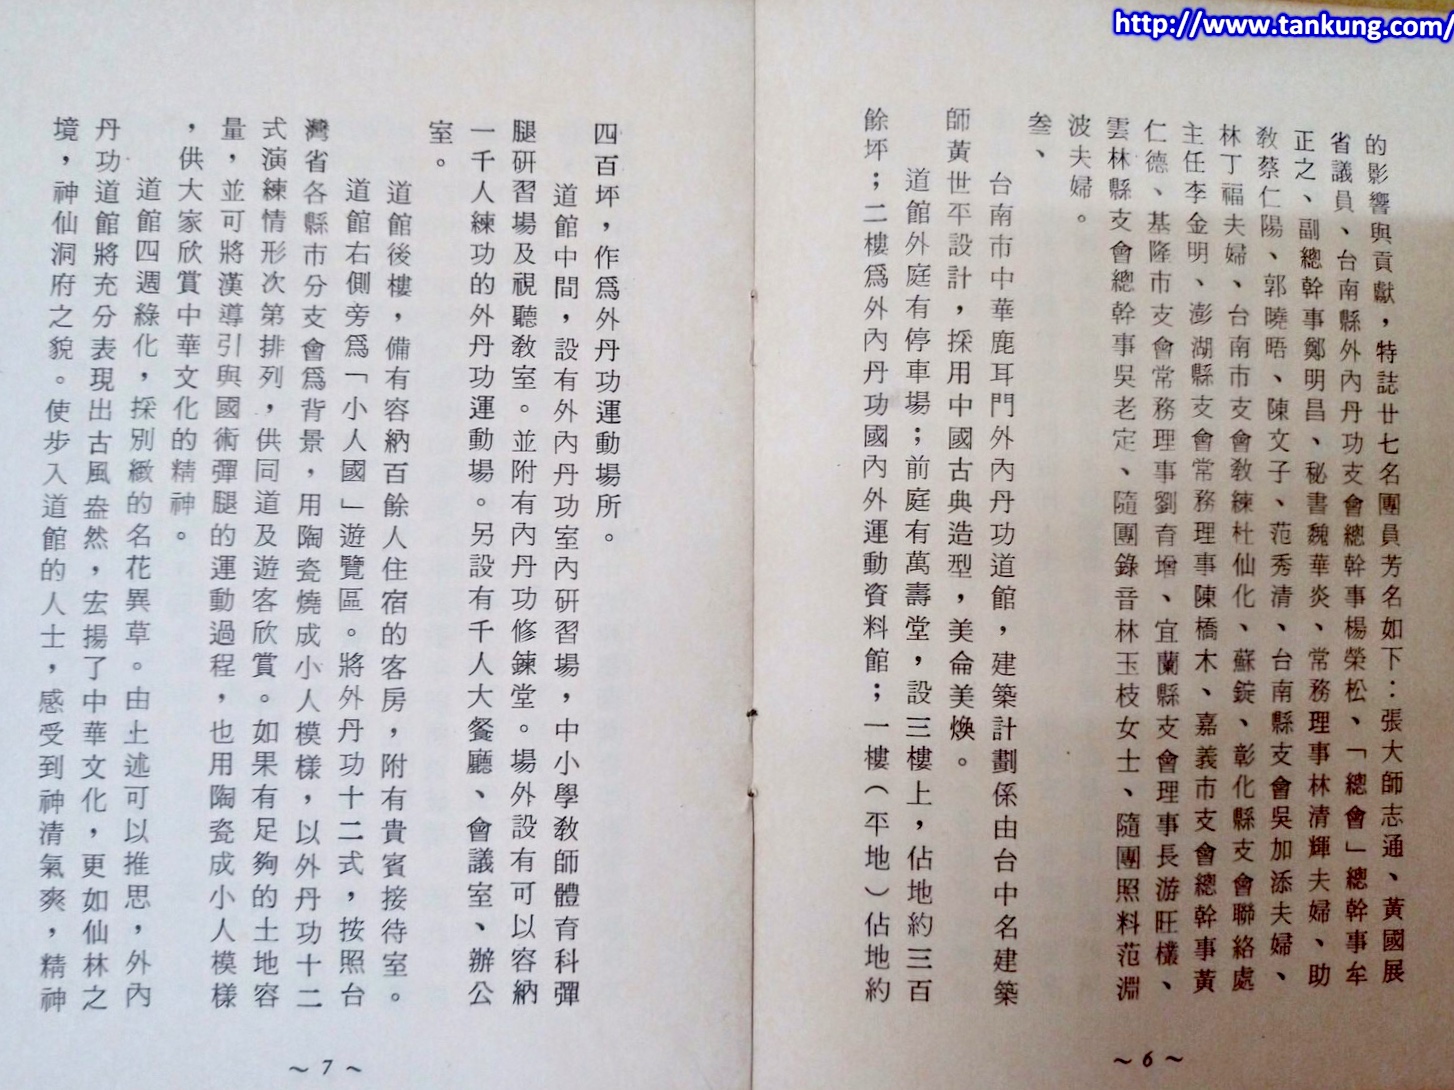 http://www.tankung.com/
的影響與貢獻，特誌廿七名團員芳名如下：張大師志通、黃國展
省議員、台南縣外內丹功支會總幹事楊榮松、「總會」總幹事牟
正之、副總幹事鄭明昌、秘書魏華炎、常務理事林清輝夫婦、助
教蔡仁陽、郭曉晤、陳文子、范秀清、台南縣支會吳加添夫婦、
林丁福夫婦、台南市支會教練杜仙化、蘇錠、彰化縣支會聯絡處
主任李金明、澎湖縣支會常務理事陳橋木、嘉義市支會總幹事黃
仁德、基隆市支會常務理事劉育增、宜蘭縣支會理事長游旺欉、
雲林縣支會總幹事吳老定、隨團錄音林玉枝女士、隨團照料范淵
波夫婦。
叁、
台南市中華鹿耳門外內丹功道館，建築計劃係由台中名建築
師黃世平設計，採用中國古典造型，美侖美煥。
道館外庭有停車場；前庭有萬壽堂，設三樓上，佔地約三百
餘坪；二樓爲外內丹功國內外運動資料館；一樓（平地）佔地約
~6~
四百坪，作爲外丹功運動場所。
道館中間，設有外內丹功室內研習場，中小學教師體育科彈
腿研習場及視聽教室。並附有內丹功修鍊堂。場外設有可以容納
一千人練功的外丹功運動場。另設有千人大餐廳、會議室、辦公
室。
道館後樓，備有容納百餘人住宿的客房，附有貴賓接待室。
道館右側旁爲「小人國」遊覽區。將外丹功十二式，按照台
灣省各縣市分支會爲背景，用陶瓷燒成小人模樣，以外丹功十二
式演練情形次第排列，供同道及遊客欣賞。如果有足夠的土地容
量，並可將漢導引與國術彈腿的運動過程，也用陶瓷成小人模樣
，供大家欣賞中華文化的精神。
道館四週綠化，採別緻的名花異草。由上述可以推思，外內
丹功道館將充分表現出古風盎然，宏揚了中華文化，更如仙林之
境，神仙洞府之貌。使步入道館的人士，感受到神清氣爽，精神
~7~